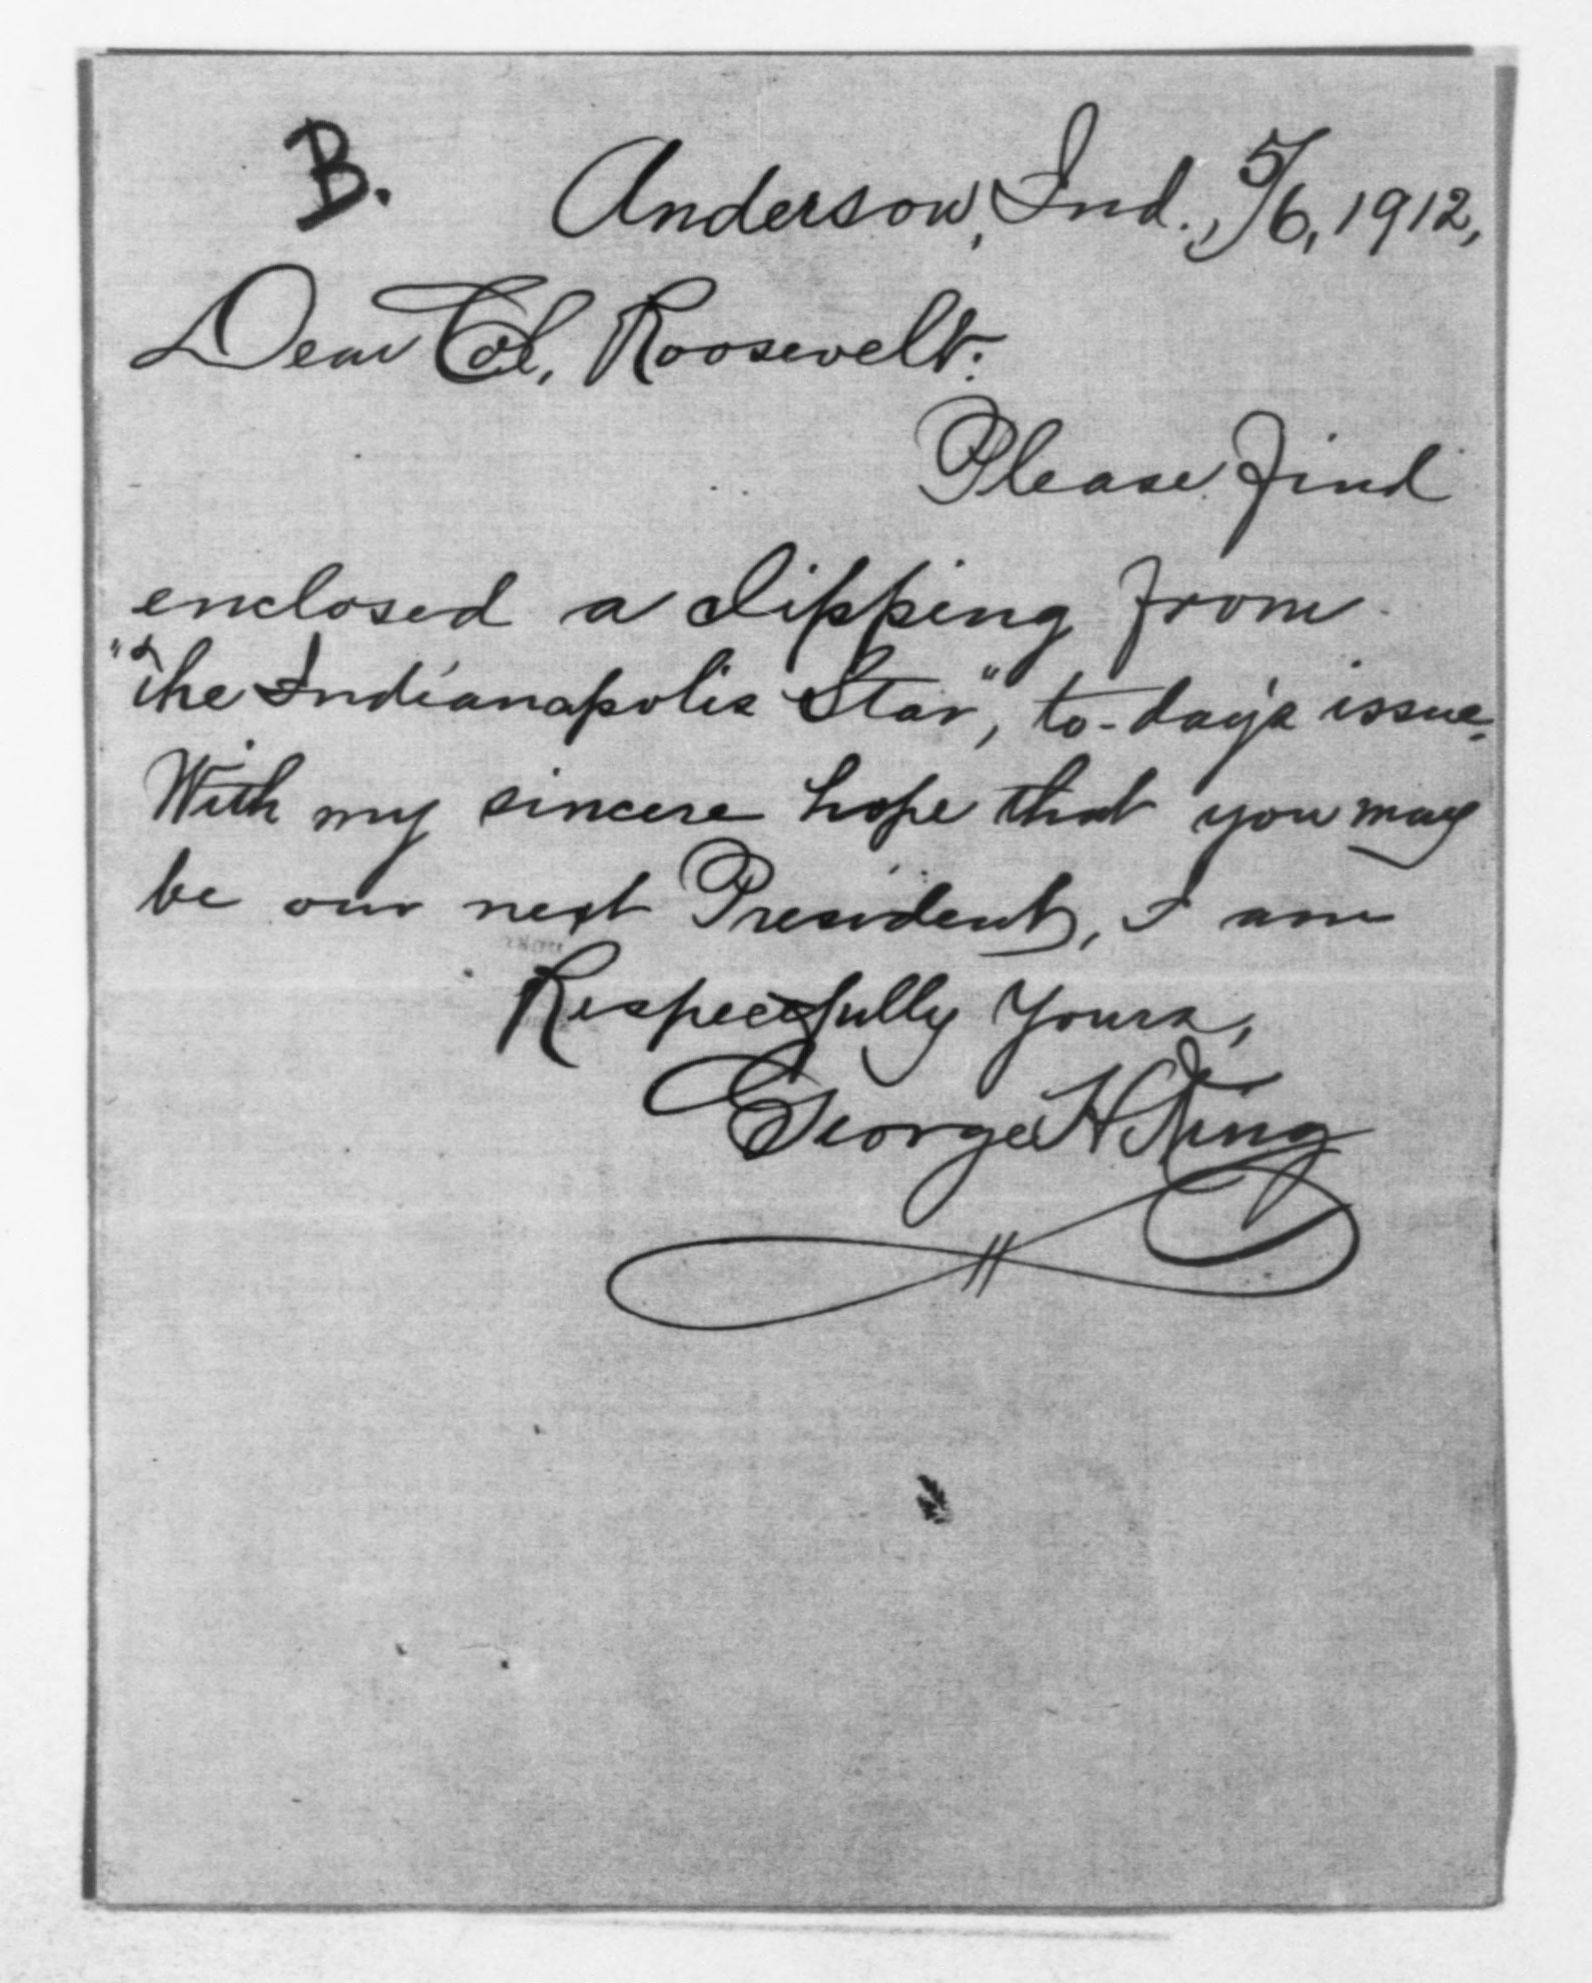 B.
Anderson, Ind., 5/6, 1912,
Dear Col. Roosevelt:
Please find
enclosed a clipping from
"The Indianapolis Star", to-day's issue.
With my sincere hope that you may
be our next President, I am
Respectfully Yours,
George H King